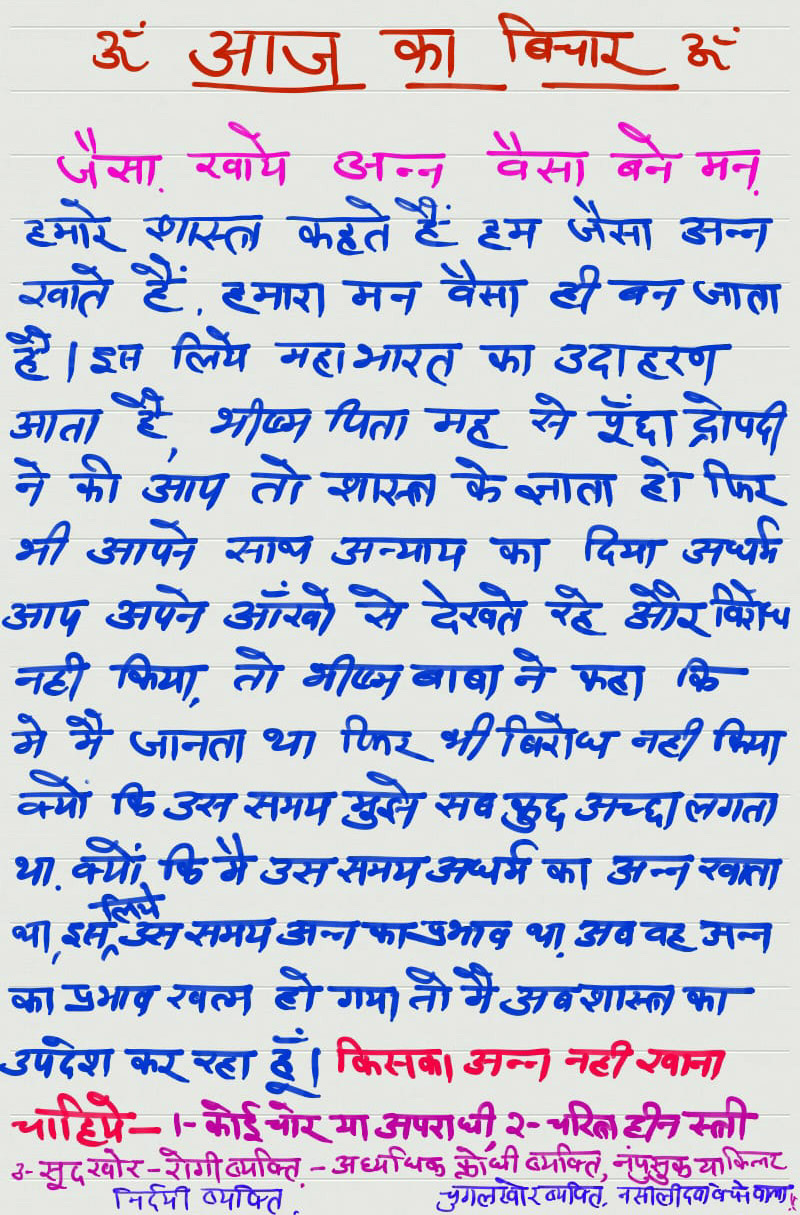 ॐ आज का बिचार ॐ
जैसा खाये अन्न वैसा बने मन
हमारे शास्त्र कहते हैं हम जैसा अन्न
खाते हैं, हमारा मन वैसा ही बन जाता
है। इस लिये महाभारत का उदाहरण
आता है, भीष्म पिता मह से पूँछा द्रोपदी
ने की आप तो शास्त्र के ज्ञाता हो फिर
भी आपने साथ अन्याय का दिया अधर्म
आप अपने आँखो से देखते रहे और विरोध
नही किया, तो भीष्म बाबा ने कहा कि
मे मै जानता था फिर भी बिरोध नही किया
क्यों कि उस समय मुझे सब कुछ अच्छा लगता
था. क्यों कि मै उस समय अधर्म का अन्न खाता
था, इस लिये उस समय अन्न का प्रभाव था. अब वह अन्न
का प्रभाव खत्म हो गया तो मै अब शास्त्र का
उपदेश कर रहा हूँ। किसका अन्न नही खाना
चाहिये– 1- कोई चोर या अपराधी, २- चरित्र हीन स्त्री
3- सूद खोर – रोगी व्यक्ति. – अत्यधिक क्रोधी व्यक्ति, नंपुसुक या किन्नर
निर्दयी व्यक्ति, चुगलखोर व्यक्ति. नसीली दवा